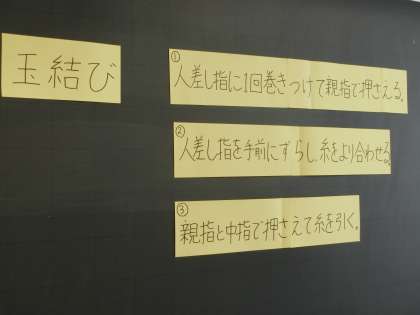 玉結び
①
人差し指に1回巻きつけて親指で押さえる。
②
人差し指を手前にずらし、糸をより合わせる。
③
親指と中指で押さえて糸を引く。